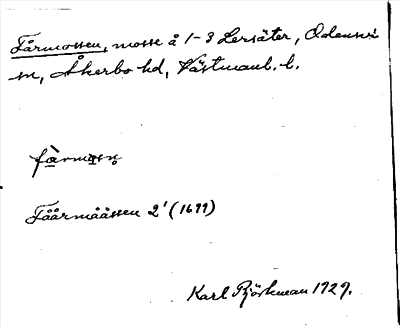 Fårmossen, mosse å 1-3 Lersäter, Odensvi
sn, Åkerbo hd, Västmanl. l.
Fåårmååssen 2' (1699)
Karl Björkman 1929.